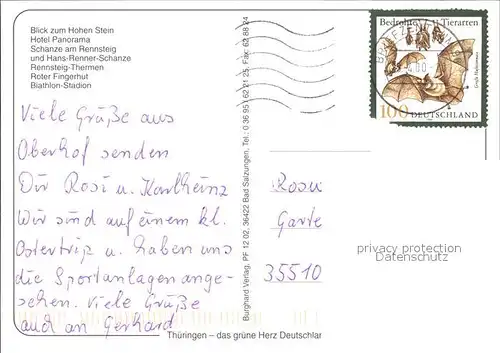 Blick zum Hohen Stein
Hotel Panorama
Schanze am Rennsteig
und Hans-Renner-Schanze
Rennsteig-Thermen
Roter Fingerhut
Biathlon-Stadion
Viele Grüße aus
Oberhof senden
Dir Rosi u. Karlheinz
Wir sind auf einem kl.
Ostertrip u. haben uns
die Sportanlagen ange-
sehen. Viele Grüße
auch an Gerhard
Thüringen – das grüne Herz Deutschlan
Burghard Verlag, PF 12 02, 36422 Bad Salzungen, Tel.: 0 36 95/ 62 21 25 Fax: 62 88 24
Bedrohte Tierarten
Große Hufeisennase
100 DEUTSCHLAND
BRIEFZENTRUM
Garte
35510
privacy protection
Datenschutz